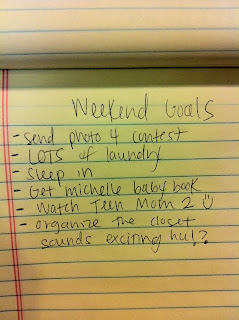 Weekend Goals
- send photo 4 contest
- LOTS of laundry
- sleep in
- Get michelle baby book
- Watch Teen Mom 2 ☺
- organize the closet
sounds exciting hu!?